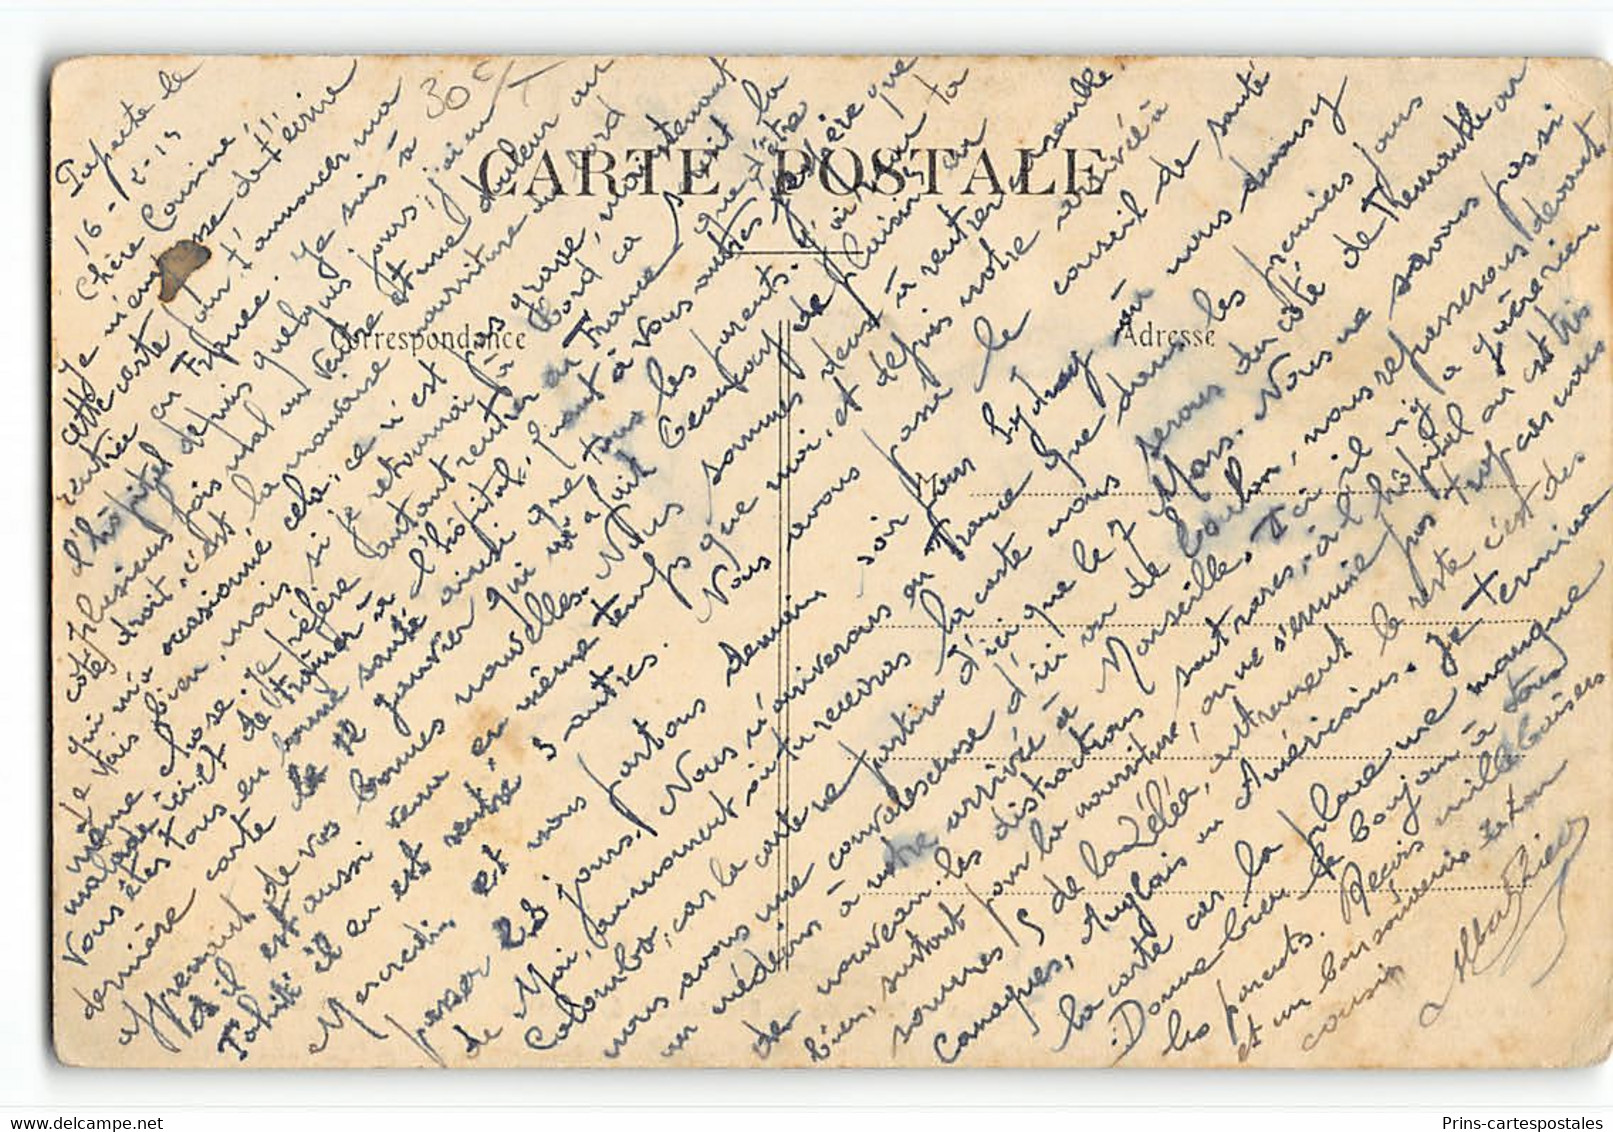 30 c/
CARTE POSTALE
Correspondance
Adresse
Papeete le
16-2-19
Chère Cousine
Je m'empresse de t'écrire
cette carte pour t'annoncer ma
rentrée en France. Je suis à
l'hôpital depuis quelques jours, j'ai eu
plusieurs fois mal au ventre et une douleur au
côté droit, c'est la mauvaise nourriture du bord
qui m'a occasionné cela, ce n'est pas grave, maintenant
je vais bien, mais si je retournais à bord ça serait la
même chose. Je préfère autant rentrer en France que d'être
malade ici et de traîner à l'hôpital, quant à vous autres j'espère que
vous êtes tous en bonne santé ainsi que tous les parents. J'ai reçu ta
dernière carte le 12 janvier qui m'a fait beaucoup de plaisir en
apprenant de vos bonnes nouvelles. Nous sommes deux à rentrer ensemble
et il est aussi venu en même temps que moi, et depuis notre arrivée à
Tahiti il en est rentré 3 autres. Nous avons passé le conseil de santé
Mercredi et nous partons demain soir pour Sydney où nous devons y
passer 23 jours. Nous n'arriverons en France que dans les premiers jours
de Mai, au moment où tu recevras la carte nous serons du côté de Nouméa ou
Colombo, car la carte ne partira d'ici que le 7 Mars. Nous ne savons pas si
nous avons une convalescence d'ici ou de Toulon, nous repasserons devant
un médecin à notre arrivée à Marseille. Ici il n'y a guère rien
de nouveau, les distractions sont rares, à l'hôpital on est très
bien, surtout pour la nourriture, on ne s'ennuie pas trop car nous
sommes 5 de la Zélée, autrement le reste c'est des
Canaques, Anglais ou Américains. Je termine
la carte car la place me manque
Donne bien le bonjour à tous
les parents. Reçois mille baisers
et un bon souvenir de ton
cousin
Prins-cartespostales